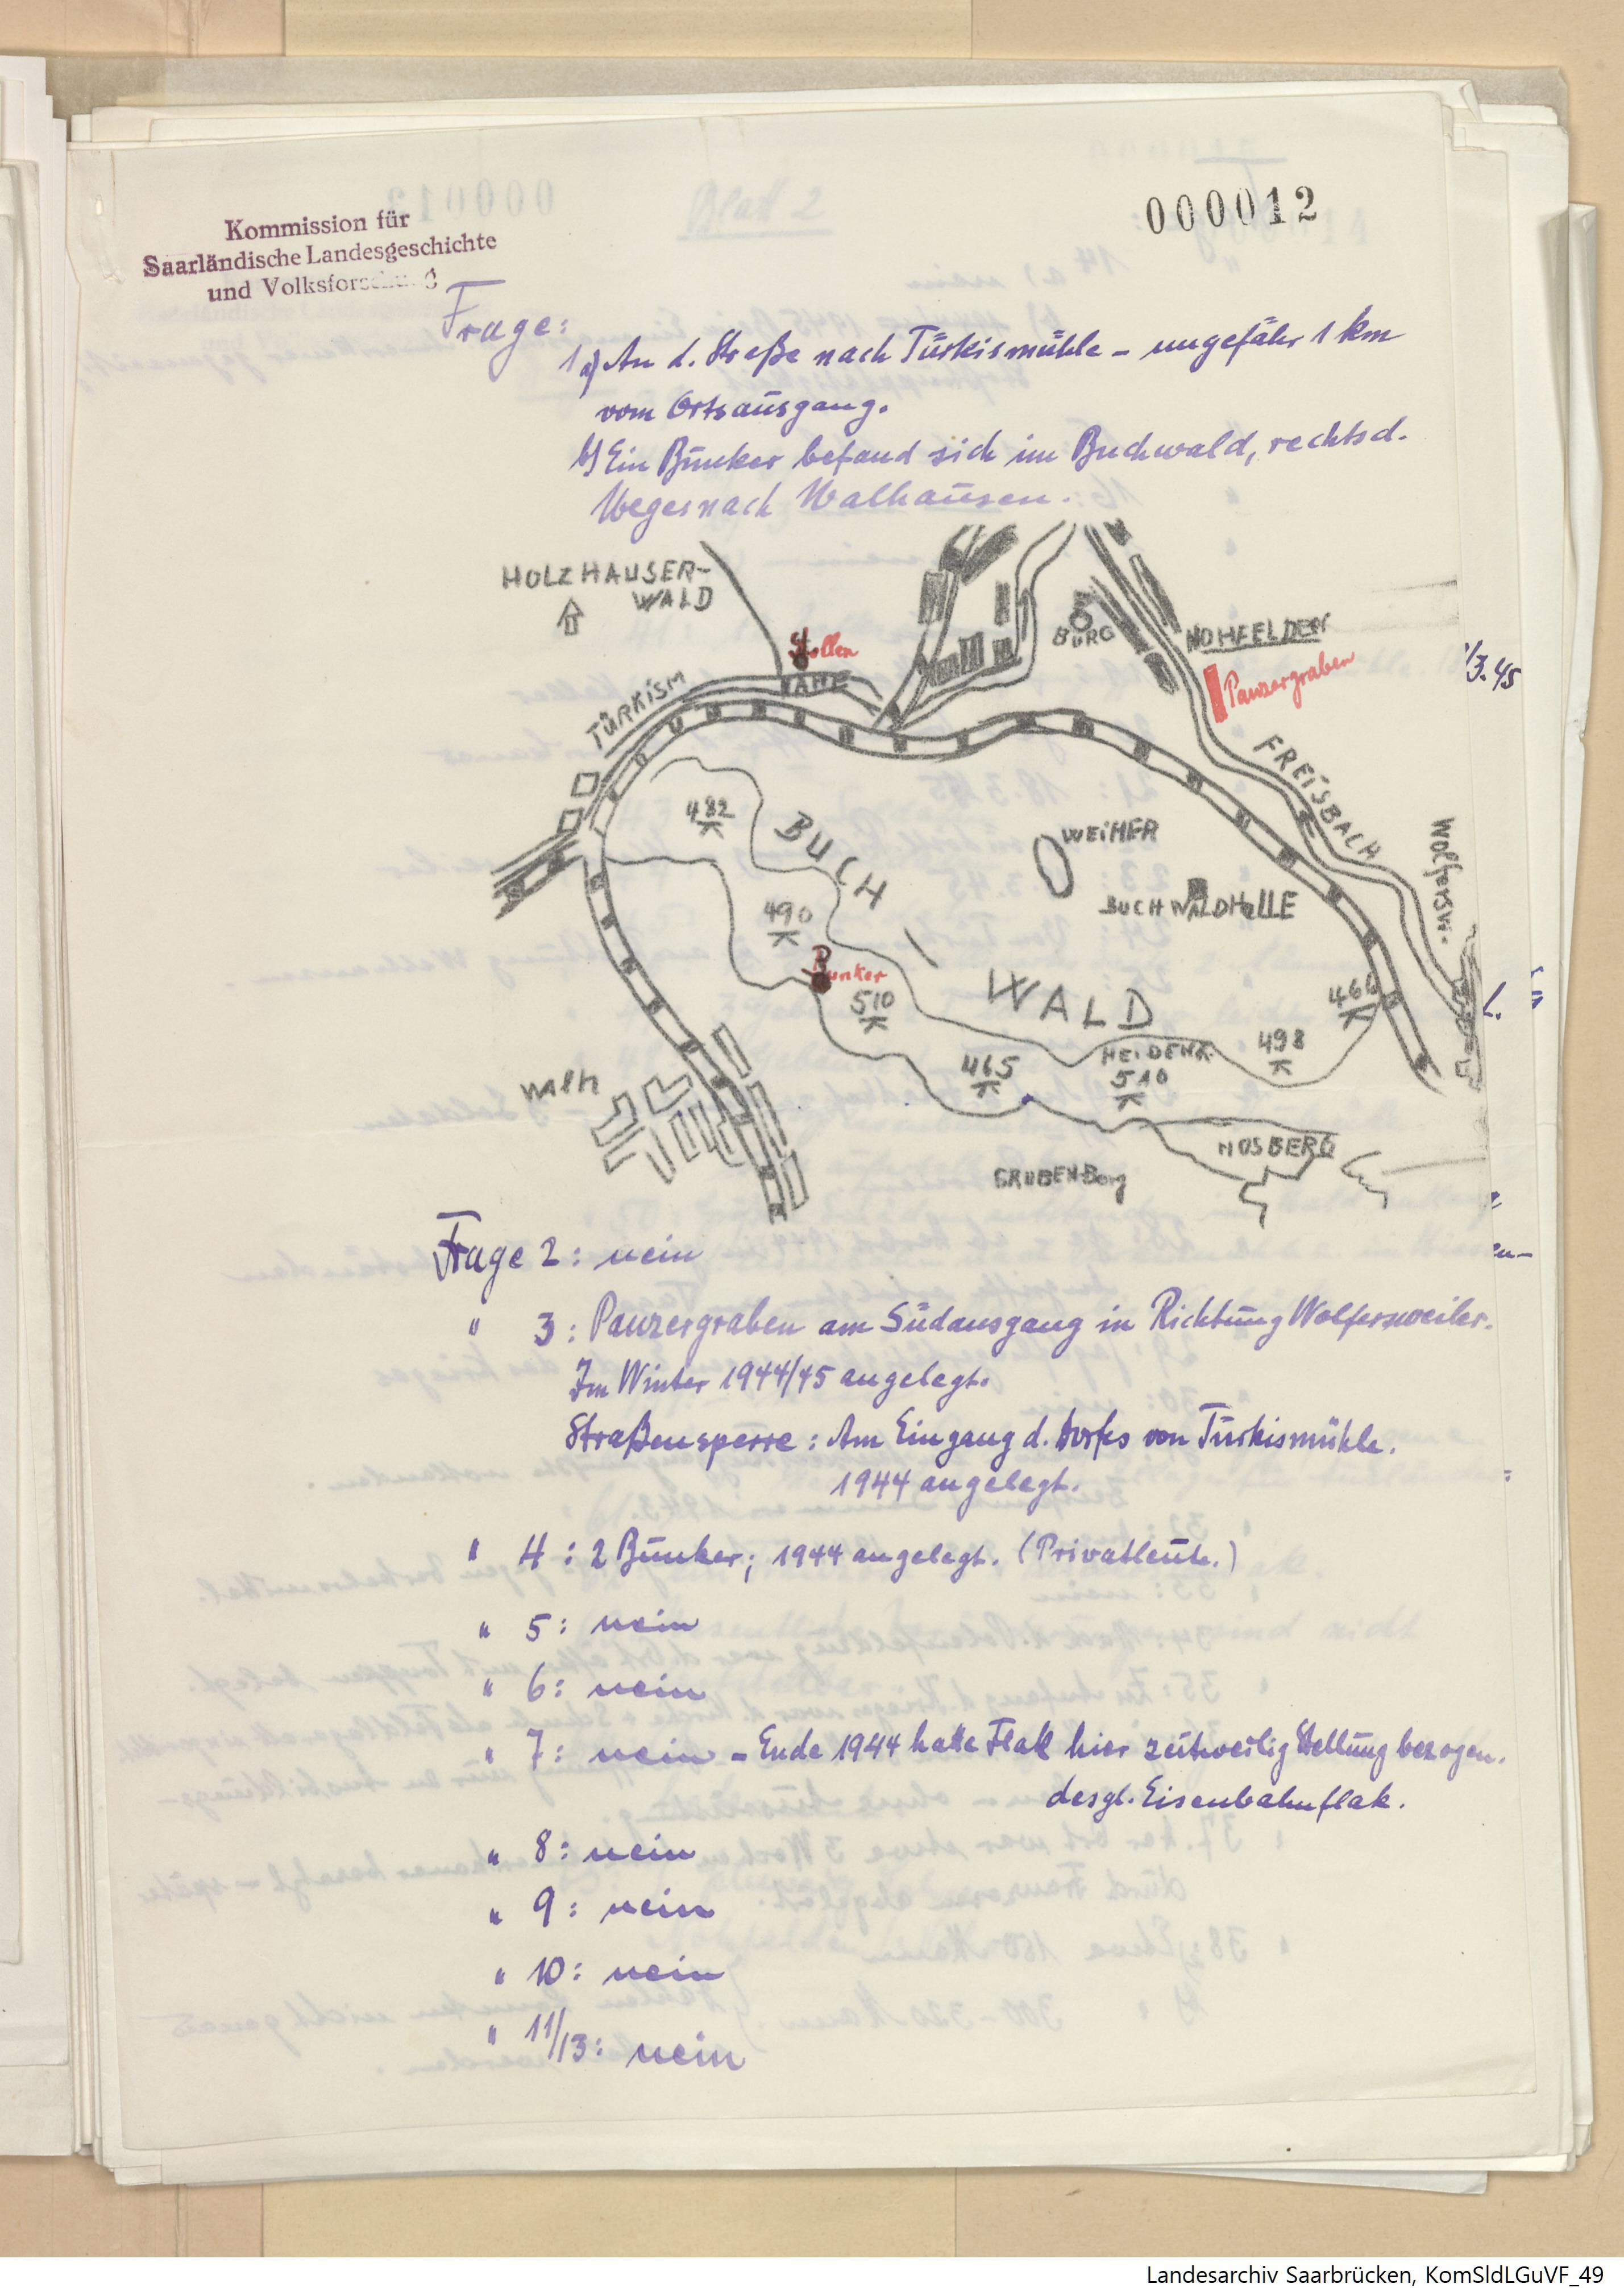 Kommission für
Saarländische Landesgeschichte
und Volksforschung
000012
Frage:
1 a) An d. Straße nach Türkismühle – ungefähr 1 km
vom Ortsausgang.
b) Ein Bunker befand sich im Buchwald, rechts d.
Weges nach Walhausen.
HOLZHAUSER-
WALD
Stollen
NAHE
TÜRKISM
BURG
NOHFELDEN
Panzergraben
FREISBACH
Wolfersw.
482
BUCH
WEIHER
BUCHWALDHALLE
490
Bunker
510
WALD
466
498
465
HEIDENK
510
WALH
NOSBERG
GRUBENBerg
Frage 2: nein
" 3: Panzergraben am Südausgang in Richtung Wolfersweiler.
Im Winter 1944/45 angelegt.
Straßensperre: Am Eingang d. Dorfes von Türkismühle.
1944 angelegt.
" 4: 2 Bunker; 1944 angelegt. (Privatleute.)
" 5: nein
" 6: nein
" 7: nein – Ende 1944 hatte Flak hier zeitweilig Stellung bezogen.
desgl. Eisenbahnflak.
" 8: nein
" 9: nein
" 10: nein
" 11/13: nein
Landesarchiv Saarbrücken, KomSldLGuVF_49